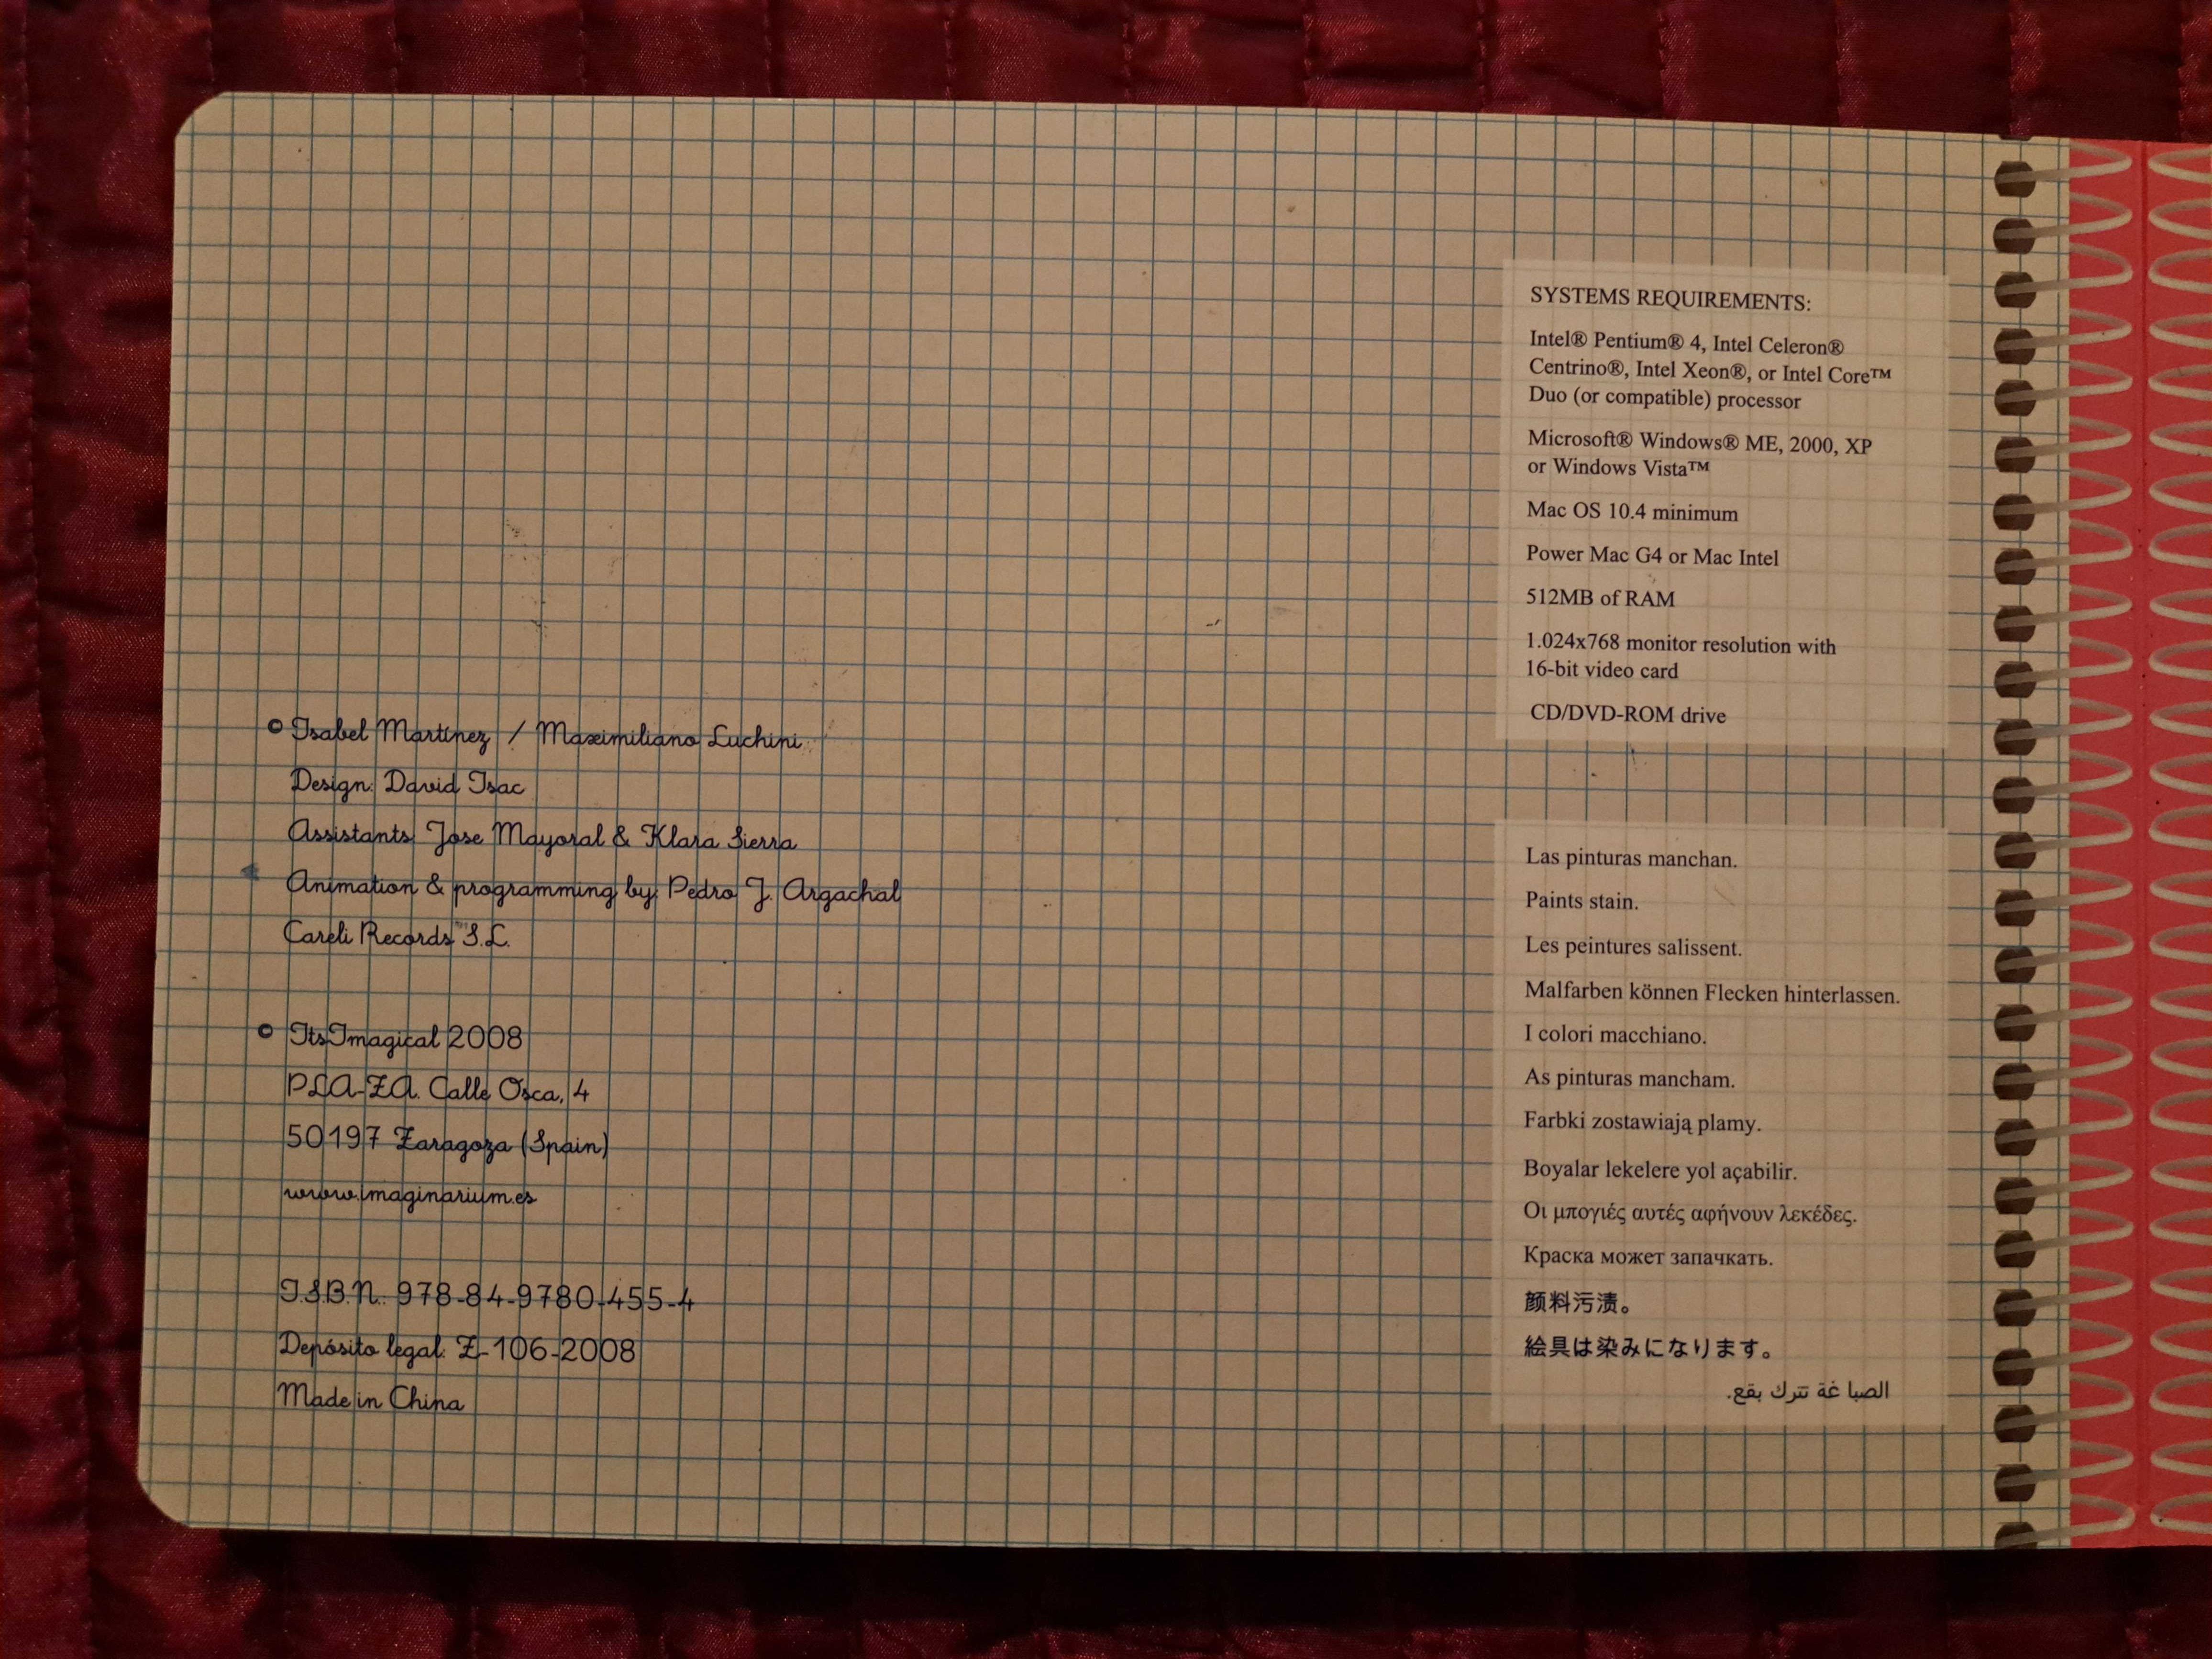 © Isabel Martínez / Maximiliano Luchini
Design: David Isac
Assistants: Jose Mayoral & Klara Sierra
Animation & programming by: Pedro J. Argachal
Careli Records S.L.
© ItsImagical 2008
PLA-ZA. Calle Osca, 4
50197 Zaragoza (Spain)
www.imaginarium.es
I.S.B.N.: 978-84-9780-455-4
Depósito legal: Z-106-2008
Made in China
SYSTEMS REQUIREMENTS:
Intel® Pentium® 4, Intel Celeron®
Centrino®, Intel Xeon®, or Intel Core™
Duo (or compatible) processor
Microsoft® Windows® ME, 2000, XP
or Windows Vista™
Mac OS 10.4 minimum
Power Mac G4 or Mac Intel
512MB of RAM
1.024x768 monitor resolution with
16-bit video card
CD/DVD-ROM drive
Las pinturas manchan.
Paints stain.
Les peintures salissent.
Malfarben können Flecken hinterlassen.
I colori macchiano.
As pinturas mancham.
Farbki zostawiają plamy.
Boyalar lekelere yol açabilir.
Οι μπογιές αυτές αφήνουν λεκέδες.
Краска может запачкать.
颜料污渍。
絵具は染みになります。
الصبا غة تترك بقع.